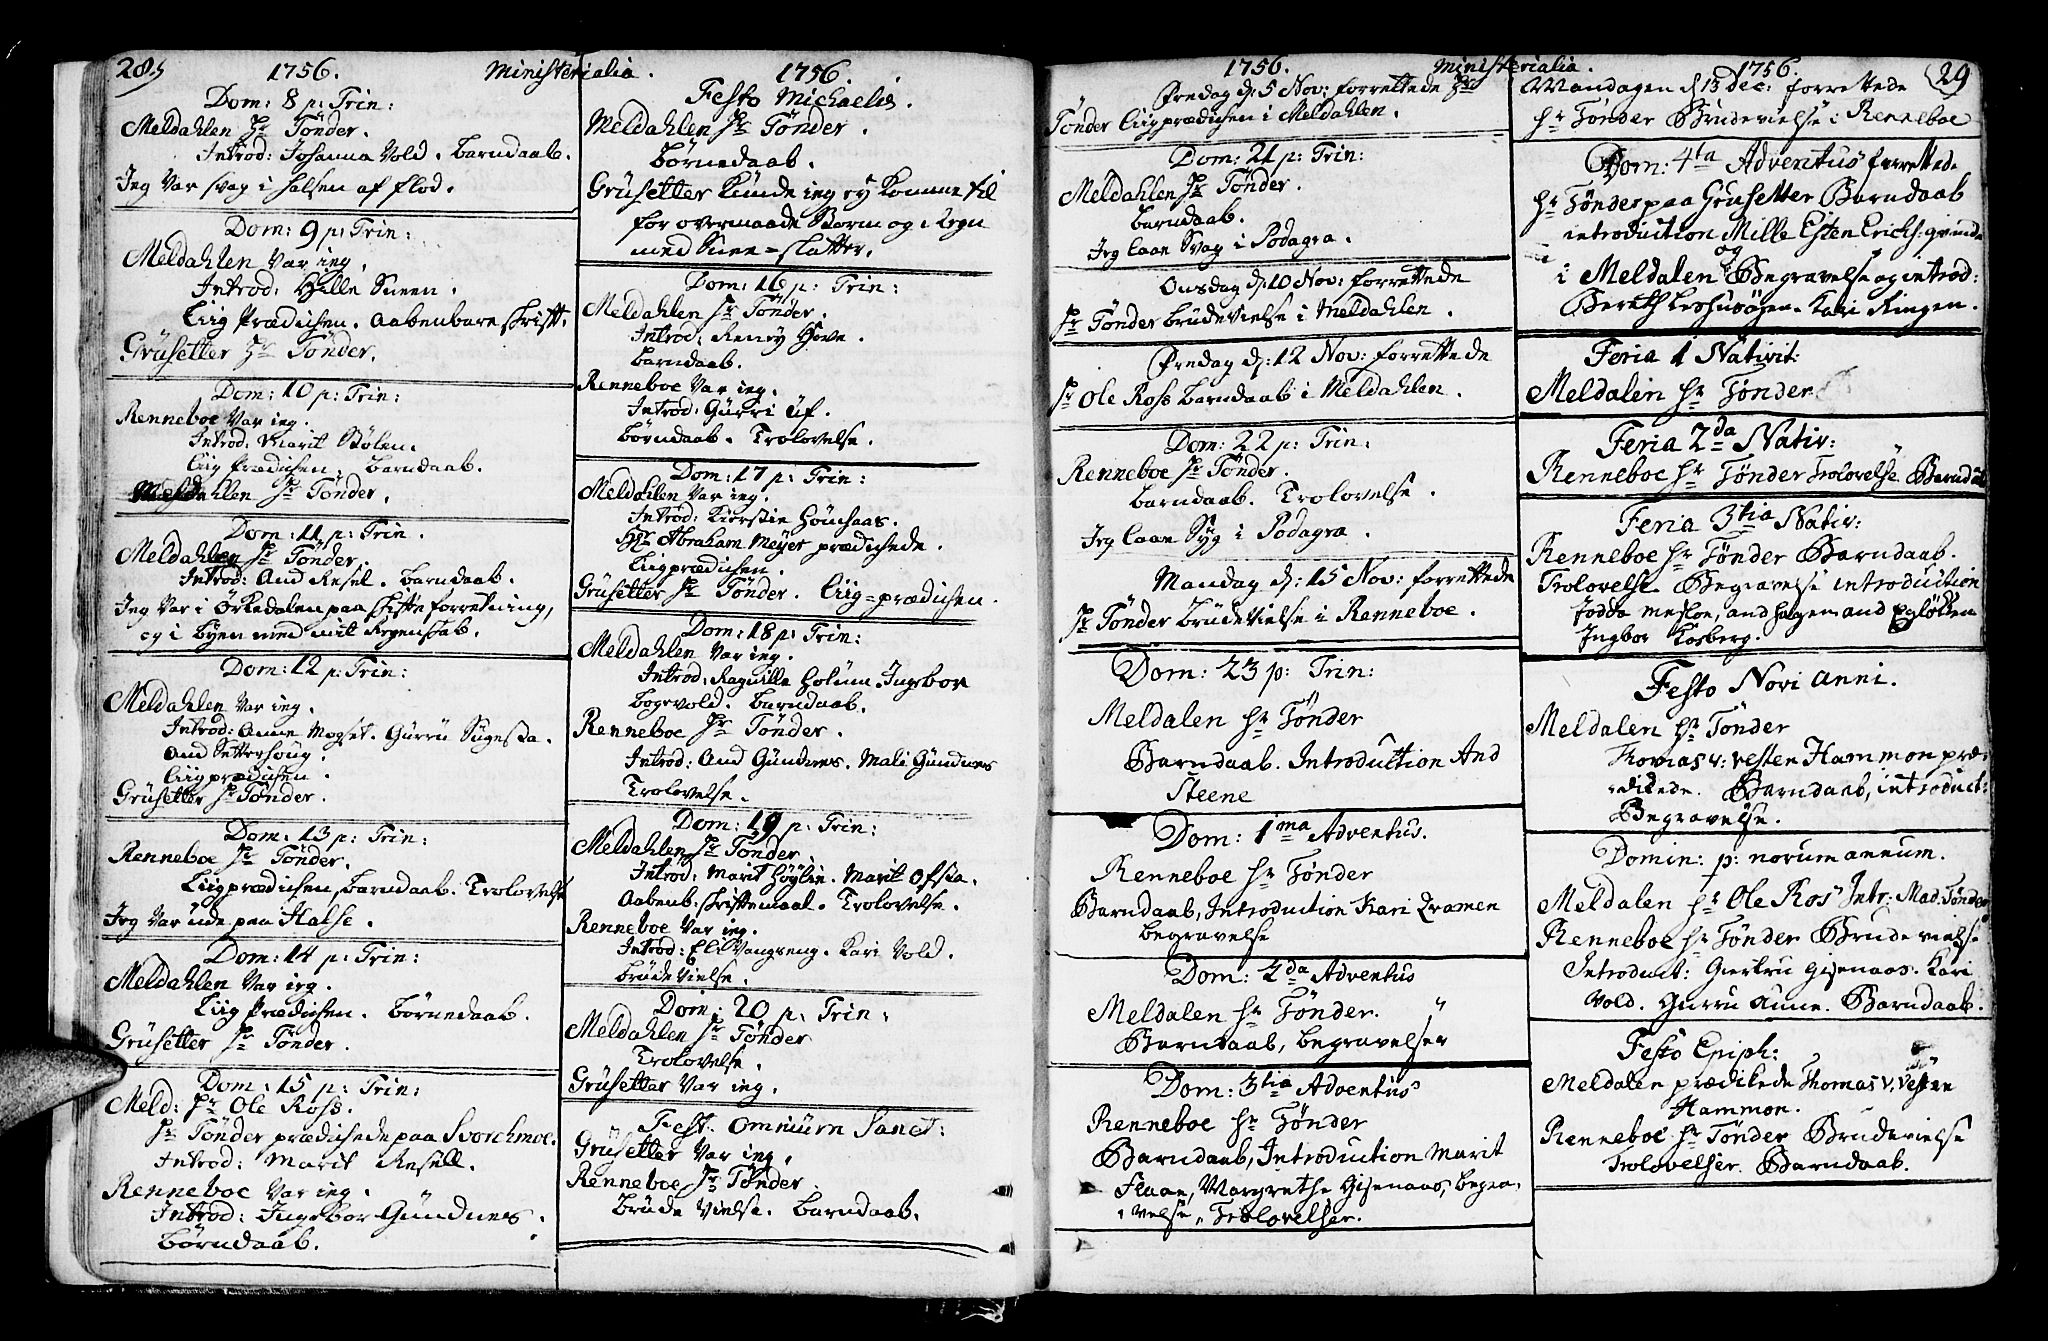 28.
1756. Ministerialia. 1756.
Dom: 8 p: Trin:
Meldahlen Hr Tønder.
Introd: Johanna Vold. barndaab.
Jeg var svag i halsen af flod.
Dom: 9 p: Trin:
Meldahlen var jeg.
Introd: Hille Sneen.
Liig Prædichen. Aabenbare skrift.
Grüsetter Hr Tønder.
Dom: 10 p: Trin:
Renneboe var jeg.
Introd: Marit Stølen.
Liig Prædichen. barndaab.
Meldahlen Hr Tønder.
Dom: 11 p: Trin.
Meldahlen Hr Tønder.
Introd: And Resel. barndaab.
Jeg var i Örkedalen paa skifte forretning,
og i byen med mit Regenskab.
Dom: 12 p: Trin:
Meldahlen var jeg.
Introd: Anne Mogset. Gurru
And Setterhoug.
Liigprædichen.
Grüsetter Hr Tønder.
Dom: 13 p: Trin:
Renneboe Hr Tønder.
Liigprædichen, barndaab. Trolovelse
Jeg var ude paa Halse.
Dom: 14 p: Trin:
Meldahlen var jeg.
Liig Prædichen. börnedaab.
Grüsetter Hr Tønder.
Dom: 15 p: Trin:
Meld: Hr Ole Ross.
Hr Tønder prædichede paa Svorchmoe.
Introd: Marit Resell.
Renneboe var jeg.
Introd: Ingebor Gündnes.
börndaab.
Festo Michaelis.
Meldahlen Hr Tønder.
börnedaab.
Grüsetter kunde jeg ey komme til
for overmaade Storm og i Regn
med Snee=slatter.
Dom: 16 p: Trin:
Meldahlen Hr Tønder.
Introd: Reney Hove.
barndaab.
Renneboe var jeg.
Introd: Gurri Uf.
börndaab. Trolovelse.
Dom: 17 p: Trin:
Meldahlen var jeg.
Introd: Kierstin
Hr Abraham Meyer prædichede.
Liigprædichen.
Grüsetter Hr Tønder. Liig=prædichen.
Dom: 18 p: Trin:
Meldahlen var jeg.
Introd: Ragnille Holum Ingebor
Bogevold. barndaab.
Renneboe Hr Tønder.
Introd: And Gündnes. Mali Gündnes
Trolovelse.
Dom: 19 p: Trin:
Meldahlen Hr Tønder
Introd: Marit Høylie. Marit Ofsta.
Aabenb: skriftemaal. Trolovelse.
Renneboe var jeg.
Introd: Eli Vangreng. Kari Vold.
brüdevielse.
Dom: 20 p: Trin:
Meldahlen Hr Tønder
Trolovelse.
Grüsetter var jeg.
Fest. Omnium Sanct:
Grüsetter var jeg.
Renneboe Hr Tønder
brüde vielse. barndaab.
1756. Ministerialia. 1756. 29
Fredag d: 5 Nov: forrettede Hr
Tønder Liigprædichen i Meldahlen.
Dom: 21 p: Trin:
Meldahlen Hr Tønder.
barndaab.
Jeg laae Svag i Podagra.
Onsdag d: 10 Nov: forrettede
Hr Tønder brüdevielse i Meldahlen.
Fredag d: 12 Nov: forrettede
Hr Ole Ross barndaab i Meldahlen.
Dom: 22 p: Trin:
Renneboe Hr Tønder.
barndaab. Trolovelse.
Jeg laae Syg i Podagra.
Mandag d: 15 Nov: forrettede
Hr Tønder brüdevielse i Renneboe.
Dom: 23 p: Trin:
Meldalen Hr Tønder
Barndaab. Introduction And
Steene
Dom: 1ma Adventus.
Renneboe Hr Tønder
Barndaab, Introduction Kari Qramen
begravelse
Dom: 2da Adventus
Meldalen Hr Tønder.
Barndaab, begravelser
Dom: 3tia Adventus
Renneboe Hr Tønder
Barndaab, Introduction Marit
Flaae, Margrethe Gisenaas, begra,
velse, Trolovelser.
Mandagen d 13 Dec: forrettede
Hr Tønder Brudevielse i Renneboe
Dom: 4ta Adventus forretted.
Hr Tønder paa Grusetter Barndaab
introduction Mille Esten Erichs: qvinde
i Meldalen og Begravelse og introd:
Bereth Kari Ringen.
Feria 1 Nativit:
Meldalen Hr Tønder
Feria 2da Nativ:
Renneboe Hr Tønder Trolovelse Barndab
Feria 3tia Nativ:
Renneboe Hr Tønder Barndaab.
Trolovelse Begravelse introduction
Jodda Mesloe, and Hagen and Egløkken
Ingbor Kosberg.
Festo Novi Anni.
Meldalen Hr Tønder
Thomas v: Vesten Hammon præ,
dikede. Barndaab, introduct:
Begravelse.
Domin: p: novum annum.
Meldalen Hr Ole Ros Intr: Mad: Tønder
Renneboe Hr Tønder Brudevielse
Introduct: Giertru Gisenaas. Kari
Vold. Gurru Aune. Barndaab.
Festo Epiph:
Meldalen prædikede Thomas v, Vesten
Hammon.
Renneboe Hr Tønder Brudevielse
Trolovelser. Barndaab.